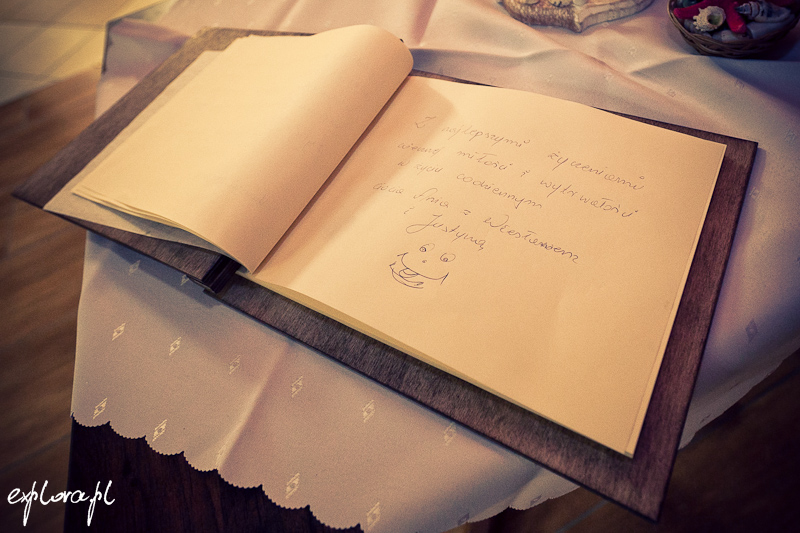 Z najlepszymi życzeniami
wiernej miłości i wytrwałości
w życiu codziennym
ciocia Ania z Wiesławem
i Justyną
explora.pl